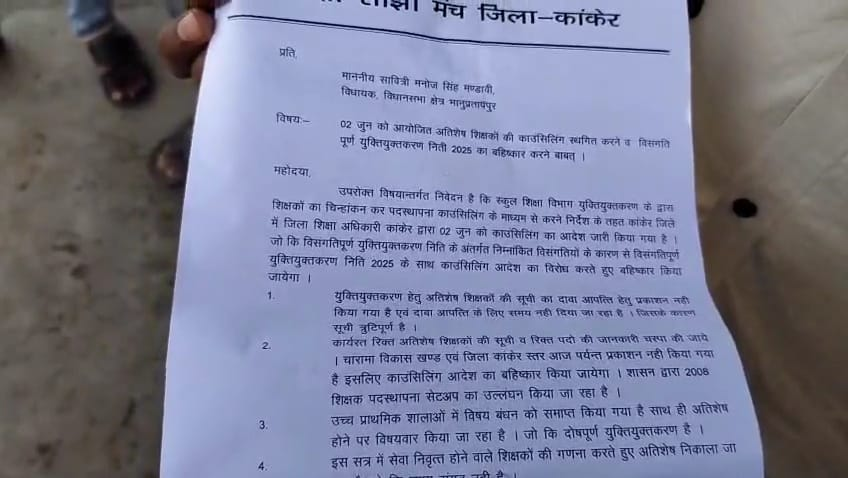 साझा मंच जिला–कांकेर
प्रति,
माननीय सावित्री मनोज सिंह मण्डावी,
विधायक, विधानसभा क्षेत्र भानुप्रतापपुर
विषयः– 02 जुन को आयोजित अतिशेष शिक्षकों की काउंसिलिंग स्थगित करने व विसगति
पूर्ण युक्तियुक्तकरण निती 2025 का बहिष्कार करने बाबत् ।
महोदया,
उपरोक्त विषयान्तर्गत निवेदन है कि स्कुल शिक्षा विभाग युक्तियुक्तकरण के द्वारा
शिक्षकों का चिन्हांकन कर पदस्थापना काउंसिलिंग के माध्यम से करने निर्देश के तहत कांकेर जिले
में जिला शिक्षा अधिकारी कांकेर द्वारा 02 जुन को काउंसिलिंग का आदेश जारी किया गया है ।
जो कि विसंगतिपूर्ण युक्तियुक्तकरण निति के अंतर्गत निम्नांकित विसंगतियों के कारण से विसंगतिपूर्ण
युक्तियुक्तकरण निति 2025 के साथ काउंसिलिंग आदेश का विरोध करते हुए बहिष्कार किया
जायेगा ।
1. युक्तियुक्तकरण हेतु अतिशेष शिक्षकों की सूची का दावा आपत्ति हेतु प्रकाशन नही
किया गया है एवं दावा आपत्ति के लिए समय नही दिया जा रहा है । जिसके कारण
सूची त्रुटिपूर्ण है ।
2. कार्यरत रिक्त अतिशेष शिक्षकों की सूची व रिक्त पदो की जानकारी चस्पा की जाये
। चारामा विकास खण्ड एवं जिला कांकेर स्तर आज पर्यन्त प्रकाशन नही किया गया
है इसलिए काउंसिलिंग आदेश का बहिष्कार किया जायेगा । शासन द्वारा 2008
शिक्षक पदस्थापना सेटअप का उल्लंघन किया जा रहा है ।
3. उच्च प्राथमिक शालाओं में विषय बंधन को समाप्त किया गया है साथ ही अतिशेष
होने पर विषयवार किया जा रहा है । जो कि दोषपूर्ण युक्तियुक्तकरण है ।
4. इस सत्र में सेवा निवृत्त होने वाले शिक्षकों की गणना करते हुए अतिशेष निकाला जा